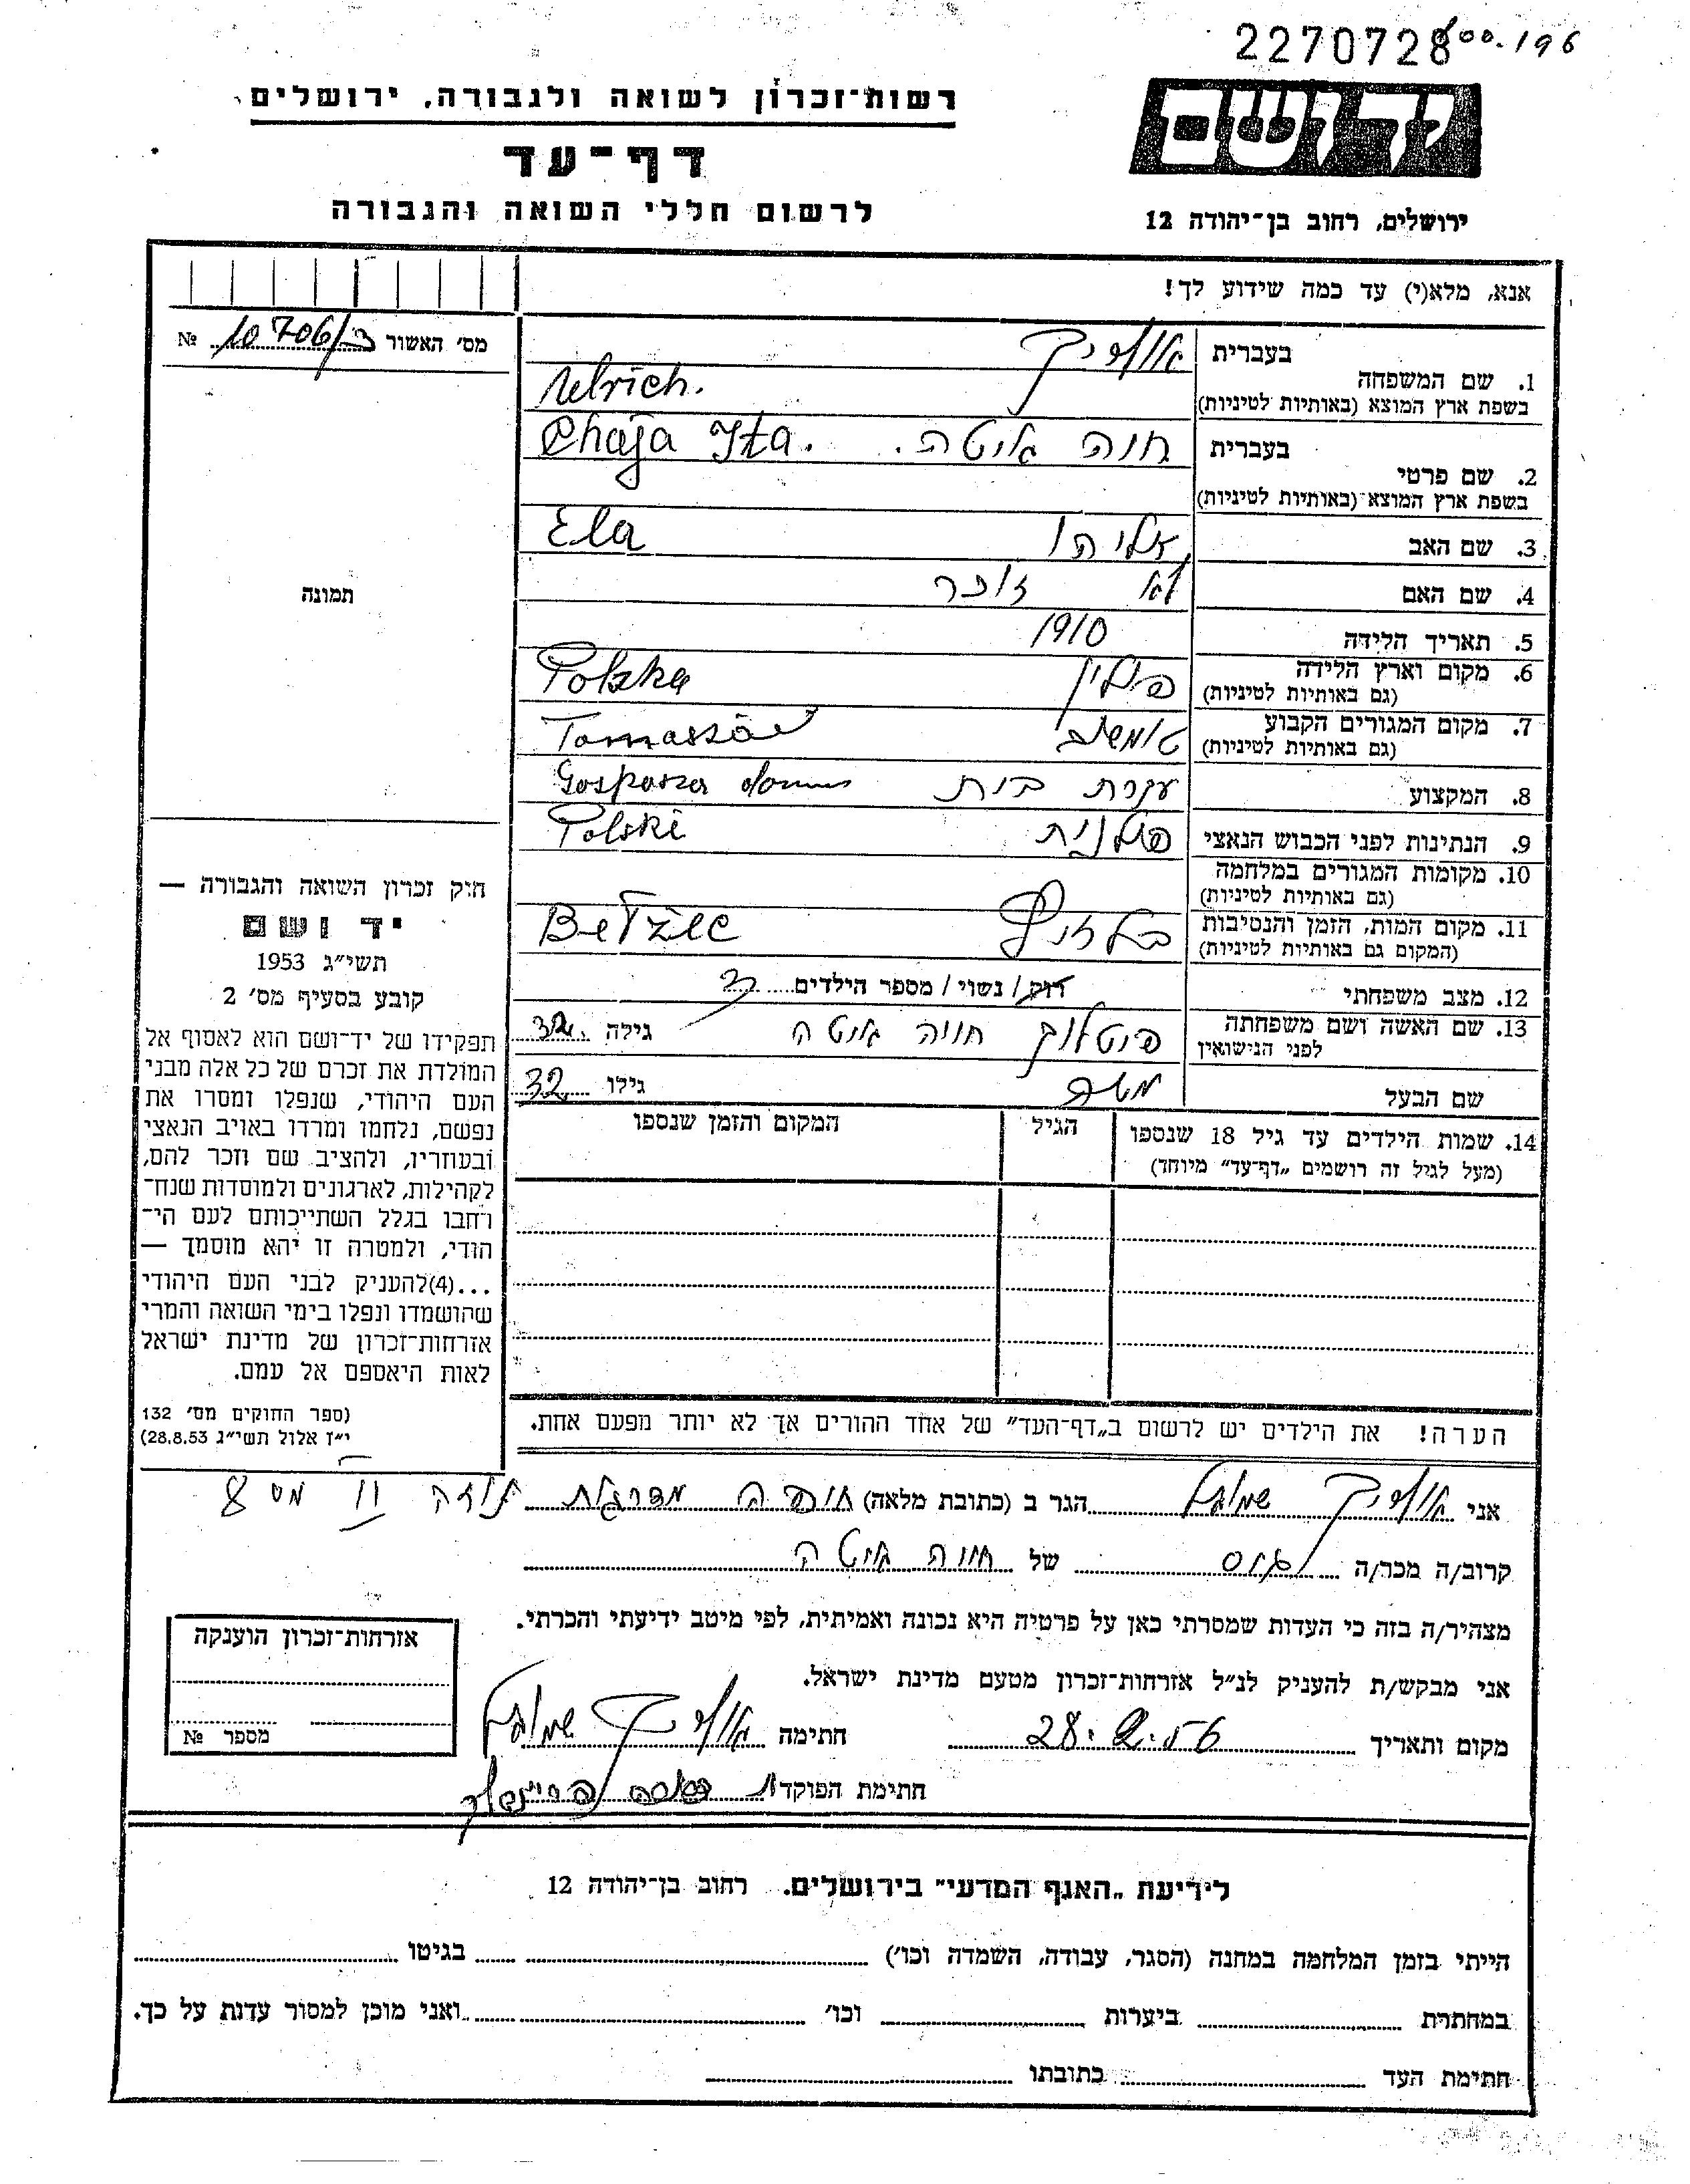 2270728 196
רשות־זכרון לשואה ולגבורה, ירושלים
יד ושם
דף־עד
לרשום חללי השואה והגבורה
ירושלים, רחוב בן־יהודה 12
אנא, מלא(י) עד כמה שידוע לך!
מס׳ האשור № 10706/
תמונה
חוק זכרון השואה והגבורה —
יד ושם
תשי״ג 1953
קובע בסעיף מס׳ 2
תפקידו של יד־ושם הוא לאסוף אל
המולדת את זכרם של כל אלה מבני
העם היהודי, שנפלו ומסרו את
נפשם, נלחמו ומרדו באויב הנאצי
ובעוזריו, ולהציב שם וזכר להם,
לקהילות, לארגונים ולמוסדות שנח־
רחבו בגלל השתייכותם לעם הי־
הודי, ולמטרה זו יהא מוסמך —
...(4)להעניק לבני העם היהודי
שהושמדו ונפלו בימי השואה והמרי
אזרחות־זכרון של מדינת ישראל
לאות היאספם אל עמם.
(ספר החוקים מס׳ 132
י״ז אלול תשי״ג 28.8.53)
בעברית אולריך
1. שם המשפחה
בשפת ארץ המוצא (באותיות לטיניות) Ulrich.
בעברית חיה איטה. Chaja Ita.
2. שם פרטי
בשפת ארץ המוצא (באותיות לטיניות)
3. שם האב אליהו Ela
4. שם האם לא זוכר
5. תאריך הלידה 1910
6. מקום וארץ הלידה פולין Polska
(גם באותיות לטיניות)
7. מקום המגורים הקבוע טומשוב Tomaszów
(גם באותיות לטיניות)
8. המקצוע עקרת בית
9. הנתינות לפני הכבוש הנאצי פולנית Polski
10. מקומות המגורים במלחמה
(גם באותיות לטיניות)
11. מקום המות, הזמן והנסיבות Bełżec
(המקום גם באותיות לטיניות)
12. מצב משפחתי רוק / נשוי / מספר הילדים
13. שם האשה ושם משפחתה חויה איטה גילה 32
לפני הנישואין
שם הבעל גילו 32
14. שמות הילדים עד גיל 18 שנספו הגיל המקום והזמן שנספו
(מעל לגיל זה רושמים „דף־עד״ מיוחד)
הערה! את הילדים יש לרשום ב„דף־העד״ של אחד ההורים אך לא יותר מפעם אחת.
אני אולריך שמואל הגר ב (כתובת מלאה) חיפה מדרגות מס 8
קרוב/ה מכר/ה גיס של חיה איטה
מצהיר/ה בזה כי העדות שמסרתי כאן על פרטיה היא נכונה ואמיתית, לפי מיטב ידיעתי והכרתי.
אני מבקש/ת להעניק לנ״ל אזרחות־זכרון מטעם מדינת ישראל.
מקום ותאריך חתימה אולריך שמואל
חתימת הפוקד
אזרחות־זכרון הוענקה
מספר №
לידיעת „האגף המדעי״ בירושלים. רחוב בן־יהודה 12
הייתי בזמן המלחמה במחנה (הסגר, עבודה, השמדה וכו׳) בגיטו
במחתרת ביערות וכו׳ ואני מוכן למסור עדות על כך.
חתימת העד כתובתו